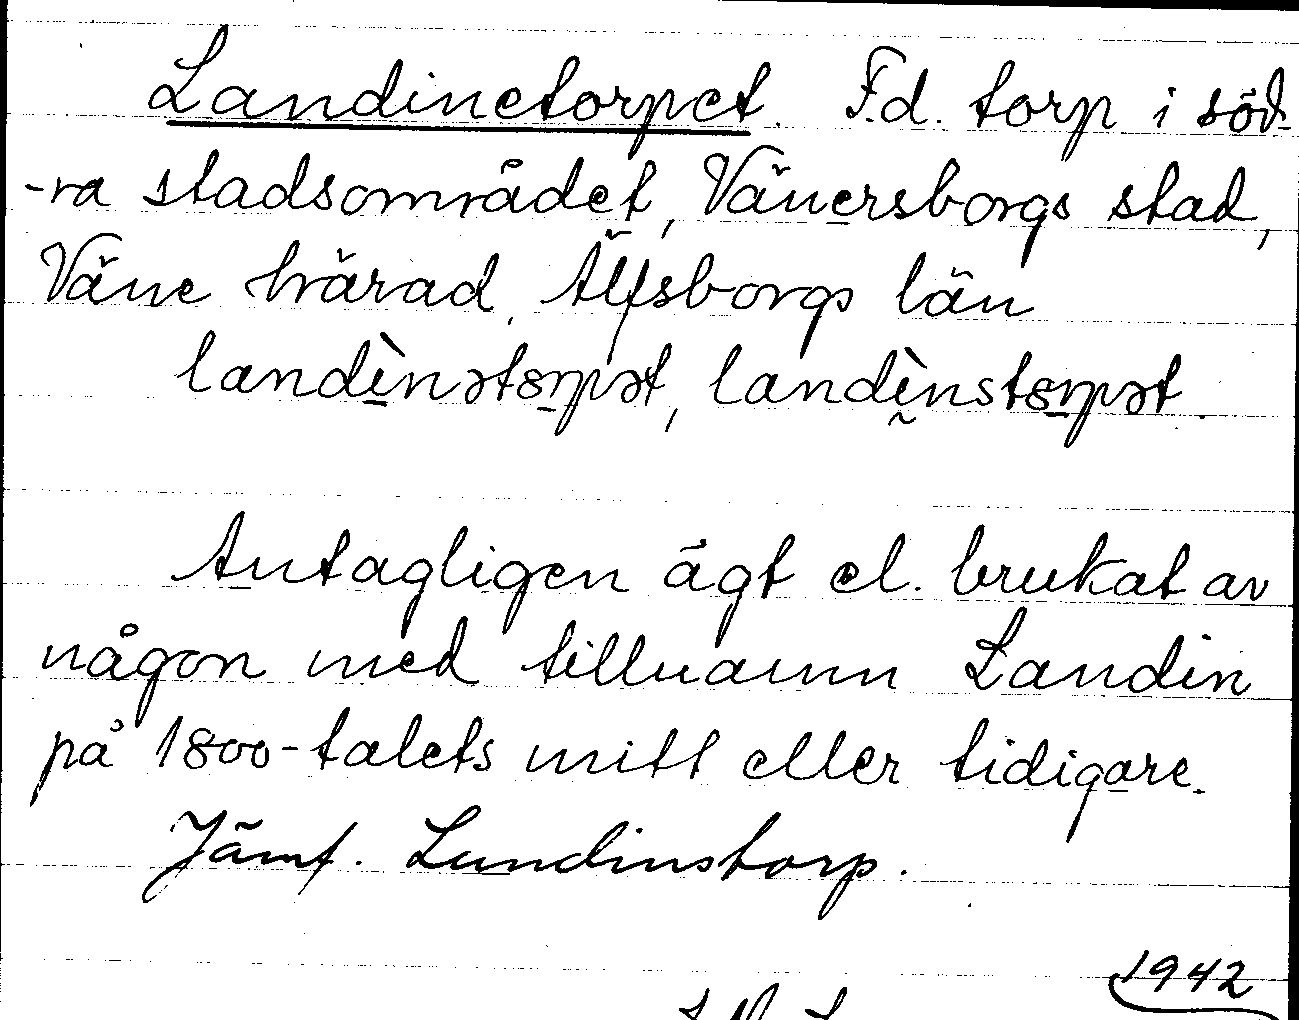 Landinetorpet. F.d. torp i söd-
-ra stadsområdet, Vänersborgs stad,
Väne härad, Älfsborgs län
landìnətɷrpət, landìnstɷrpət.
Antagligen ägt el. brukat av
någon med tillnamn Landin
på 1800-talets mitt eller tidigare.
Jämf. Lundinstorp.
1942